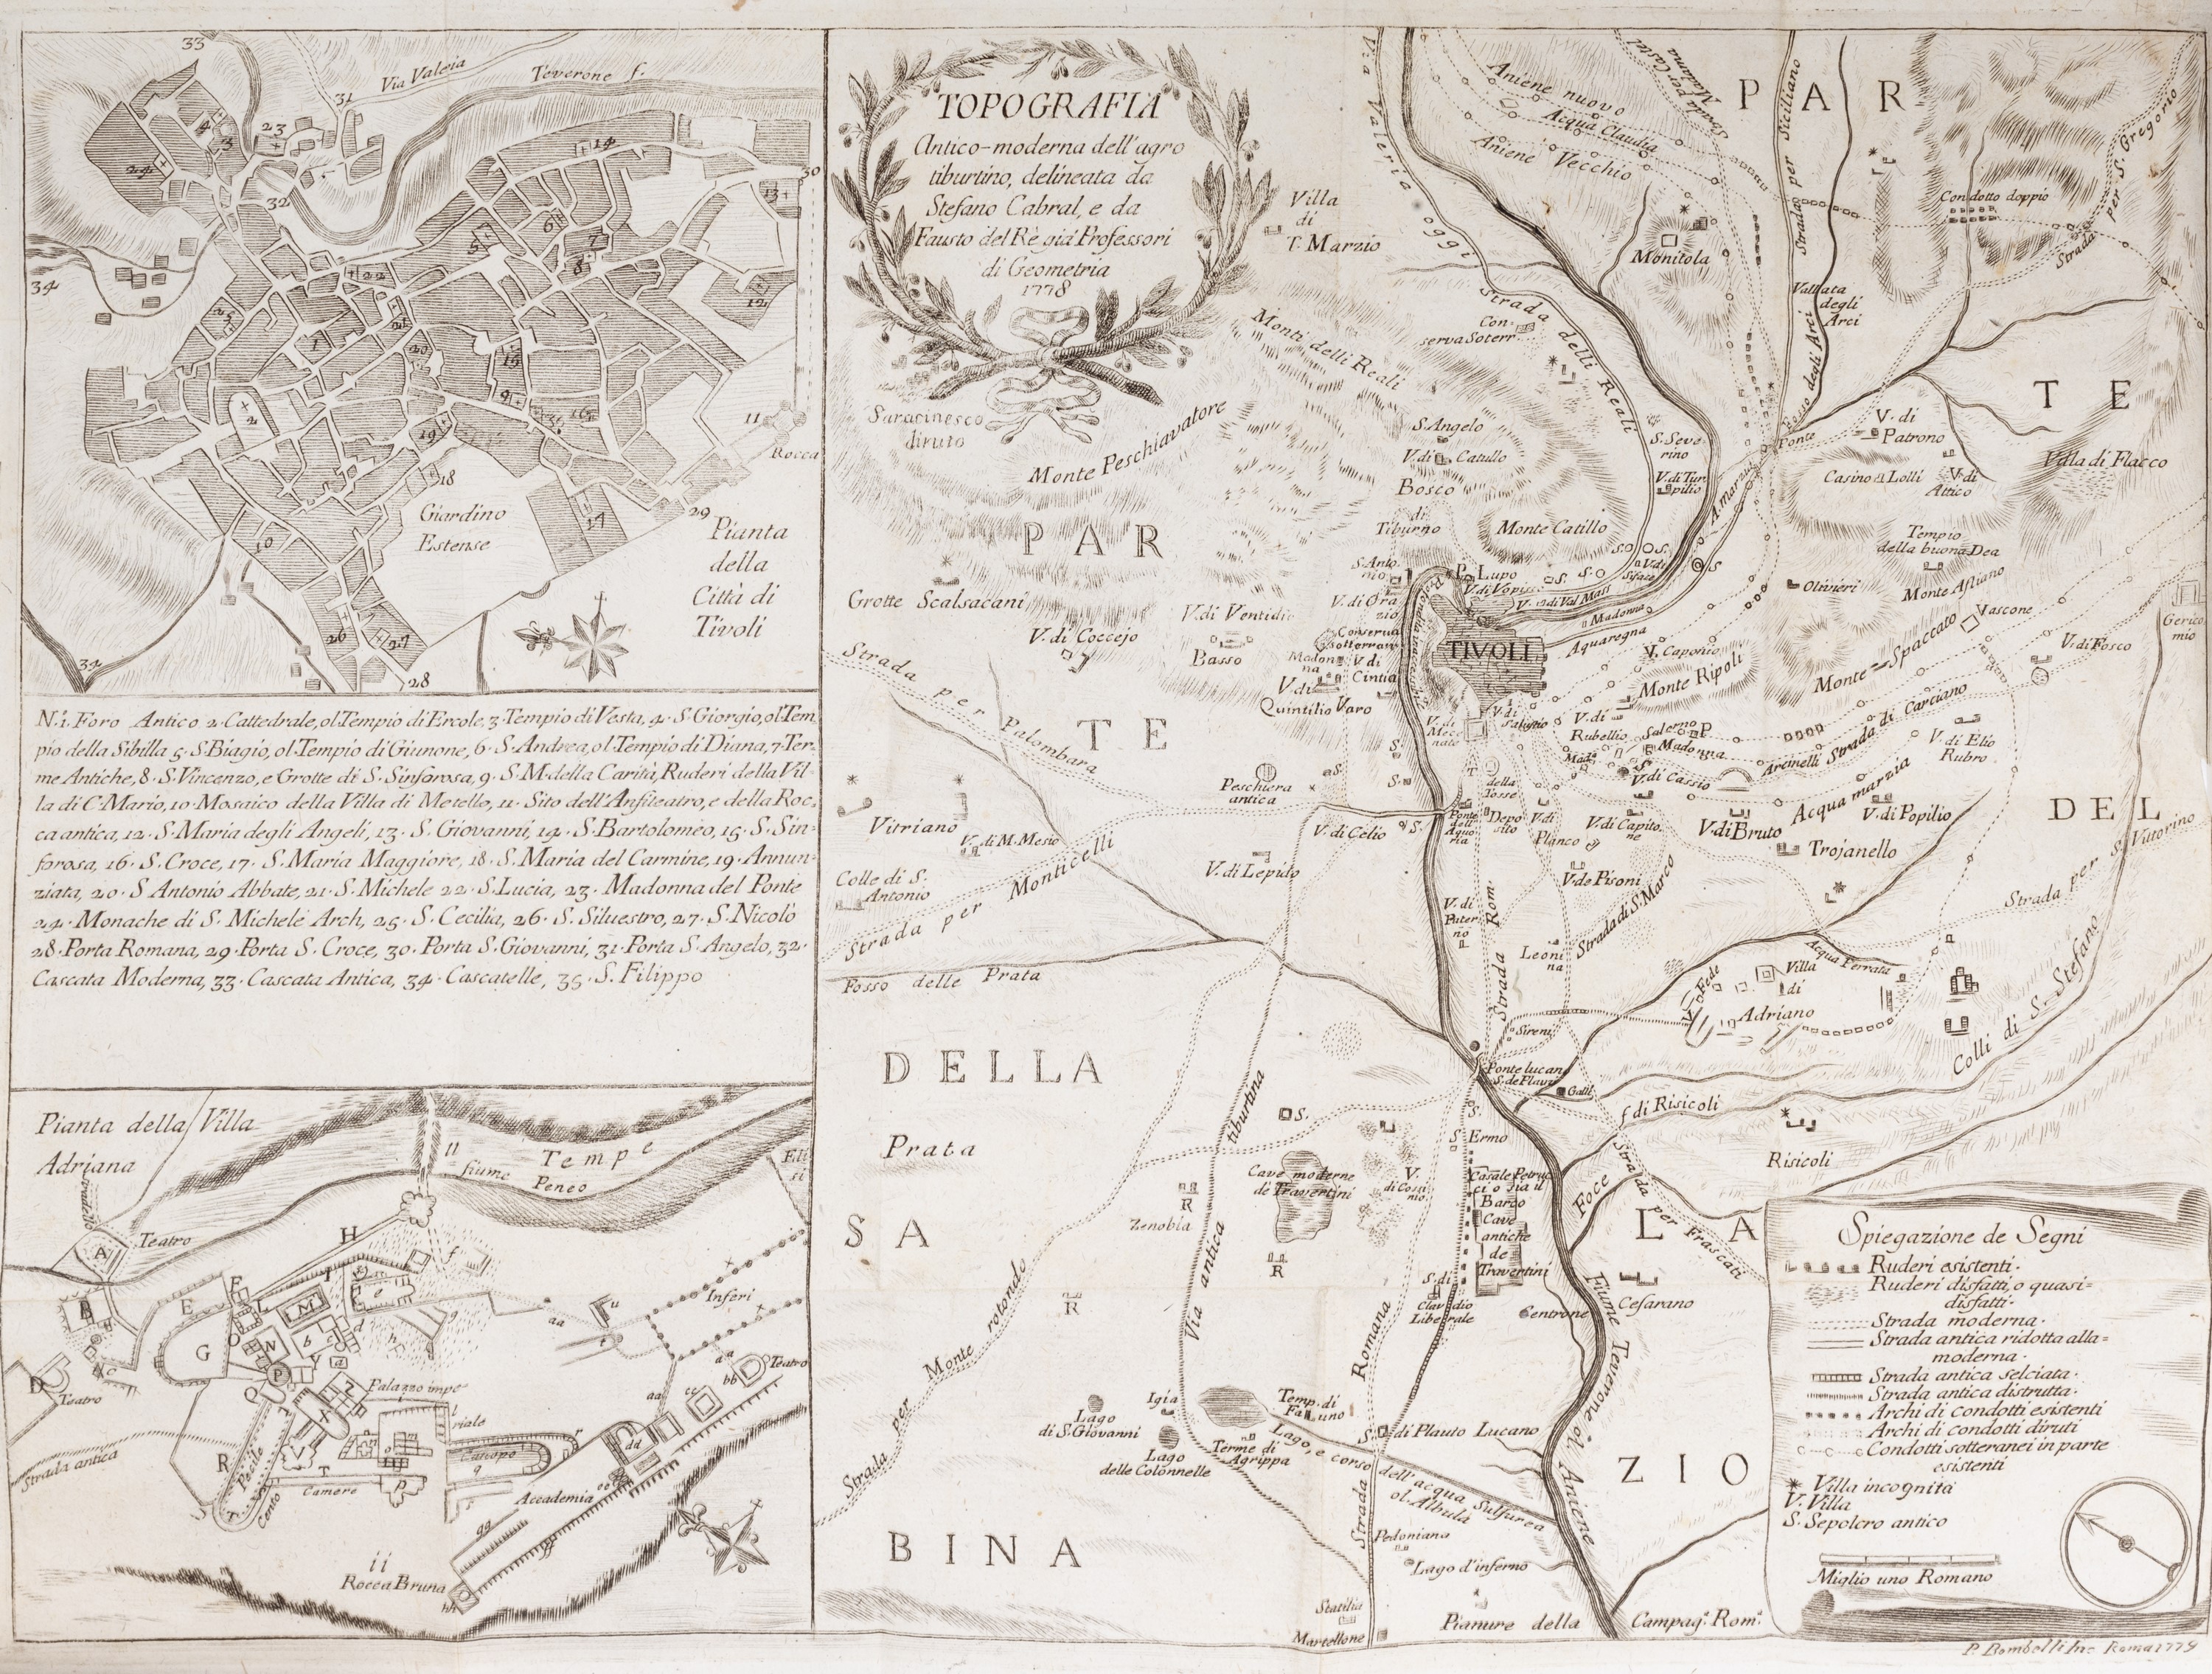 33
Via Valeria
Teverone f.
31
23
4
3
24
32
14
30
13
6
5
7
8
22
12
34
25
21
1
20
15
2
9
16
35
11
Rocca
19
18
Giardino
Estense
17
29
10
Pianta
della
Città di
Tivoli
26
27
28
34
N.i. Foro Antico 2. Cattedrale, ol Tempio di Ercole, 3. Tempio di Vesta, 4. S. Giorgio, ol Tem
pio della Sibilla 5. S. Biagio, ol Tempio di Giunone, 6. S. Andrea, ol Tempio di Diana, 7. Ter-
me Antiche, 8. S. Vincenzo, e Grotte di S. Sinforosa, 9. S. M. della Carità, Ruderi della Vil-
la di C. Mario, 10. Mosaico della Villa di Metello, 11. Sito dell'Anfiteatro, e della Roc,
ca antica, 12. S. Maria degli Angeli, 13. S. Giovanni, 14. S. Bartolomeo, 15. S. Sin-
forosa, 16. S. Croce, 17. S. Maria Maggiore, 18. S. Maria del Carmine, 19. Annun-
ziata, 20. S Antonio Abbate, 21. S. Michele 22. S. Lucia, 23. Madonna del Ponte
24. Monache di S. Michele Arch, 25. S. Cecilia, 26. S. Silvestro, 27. S. Nicolò
28. Porta Romana, 29. Porta S. Croce, 30. Porta S. Giovanni, 31. Porta S. Angelo, 32.
Cascata Moderna, 33. Cascata Antica, 34. Cascatelle, 35. S. Filippo
Pianta della Villa
Adriana
Tempe
fiume
Peneo
Eli
si
Teatro
A
B
C
D
Teatro
E
F
G
H
I
L
M
N
O
P
Q
R
S
T
V
X
Y
Z
Palazzo impe
riale
Pecile
Cento
Camere
Canopo
q
Strada antica
Inferi
u
aa
Teatro
bb
cc
dd
Accademia
ee
gg
hh
ii
Rocca Bruna
TOPOGRAFIA
Antico-moderna dell'agro
tiburtino, delineata da
Stefano Cabral, e da
Fausto del Rè già Professori
di Geometria
1778
Via Valeria oggi
Strada delli Reali
Aniene nuovo
Acqua Claudia
Aniene Vecchio
Strada per Castel
Madama
Strada per Siciliano
P A R
T E
DEL
L A
Z I O
Condotto doppio
Strada per S. Gregorio
Villa
di
T. Marzio
Monitola
Vallata
degli
Arci
Fosso degli Arci
Con-
serva Soterr.
Monti delli Reali
Saracinesco
diruto
Monte Peschiavatore
S. Angelo
V. di Catullo
Bosco
di
Tiburno
S. Seve-
rino
V. di Tur
pilio
Monte Catillo
Ponte
V. di
Patrono
Casino Lolli
V. di
Attico
Villa di Flacco
A. Marzia
Tempio
della buona Dea
Monte Afliano
Olivieri
Vascone
Gerico
mio
V. di Fosco
Monte Spaccato
P A R
T E
Grotte Scalsacani
V. di Coccejo
V. di Ventidio
Basso
S. Anto
nio
V. di Ora
zio
Conserva
Sotterran
Madon
na
V. di
Cintia
V. di
Quintilio Varo
P. Lupo
V. di Vopis.
V. di Val Mass.
Siface
Madonna
TIVOLI
Aquaregna
V. Caponio
Monte Ripoli
V. di
Mec
nate
V. di
Salustio
V. di
Rubellio
Salerno P
Madonna
V. di Cassio
Arcinelli
Strada di Carciano
V. di Elio
Rubro
Strada per Palombara
Peschiera
antica
Vitriano
V. di M. Mesio
V. di Celio
Ponte
dell'
Aquo
ria
della
Tosse
Depo
sito
V. di
Planco
V. di Capito
ne
V. di Bruto
Acqua marzia
V. di Popilio
Trojanello
V. di Lepido
V. de Pisoni
Colle di S.
Antonio
Strada per Monticelli
V. di
Pater
no
Strada di S. Marco
Leoni
na
Strada per S. Vittorino
Acqua Ferrata
V. Fede
Villa
di
Adriano
Colli di S. Stefano
Fosso delle Prata
Strada Rom.
Sireni
Ponte lucan
S. de Plauz
Gall.
f di Risicoli
Risicoli
DELLA
Prata
S A
B I N A
Via antica tiburtina
Ermo
Casale Petruc
ci o sia il
Barco
Cave
antiche
de
Travertini
Cave moderne
de Travertini
V.
di Cossi
nio.
Zenobia
R
R
R
Foce
Strada per Frascati
Cesarano
Centrone
S. di
Claudio
Liberale
Fiume Teverone ol Aniene
Strada Romana
Strada per Monte rotondo
Igia
Lago
di S. Giovanni
Lago
delle Colonnelle
Terme di
Agrippa
Temp. di
Fauno
Lago, e corso dell'acqua Sulfurea
ol. Albula
S. di Plauto Lucano
Pedoniana
Lago d'inferno
Statilia
Martellone
Pianure della Campag.a Rom.a
Spiegazione de Segni
Ruderi esistenti.
Ruderi disfatti, o quasi-
disfatti.
Strada moderna.
Strada antica ridotta alla=
moderna.
Strada antica selciata.
Strada antica distrutta.
Archi di condotti esistenti
Archi di condotti diruti
Condotti sotteranei in parte
esistenti
Villa incognita
V. Villa
S. Sepolcro antico
Miglio uno Romano
P. Bombelli Inc. Roma 1779